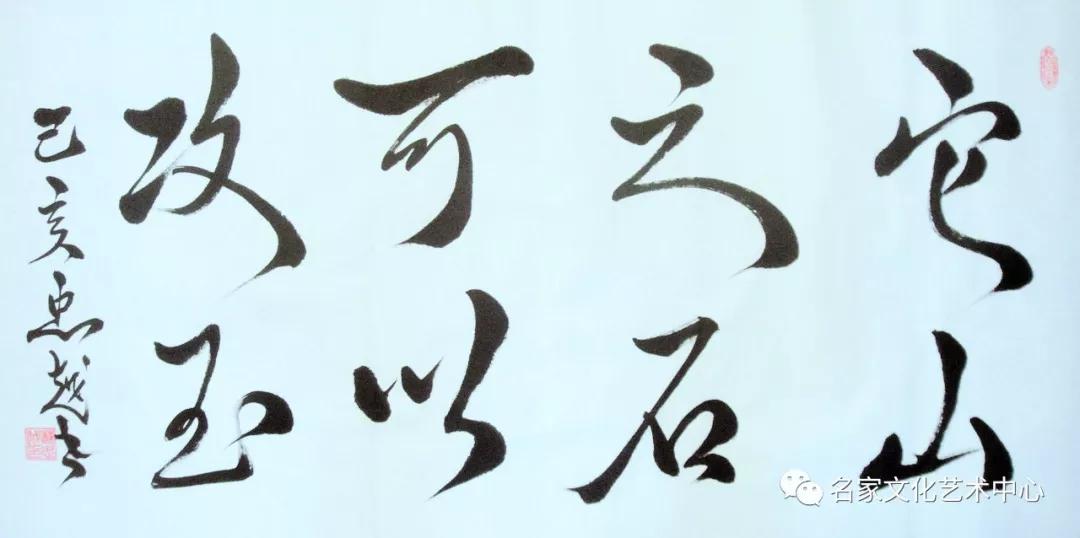 它山
之石
可以
攻玉
己亥忠越书
名家文化艺术中心